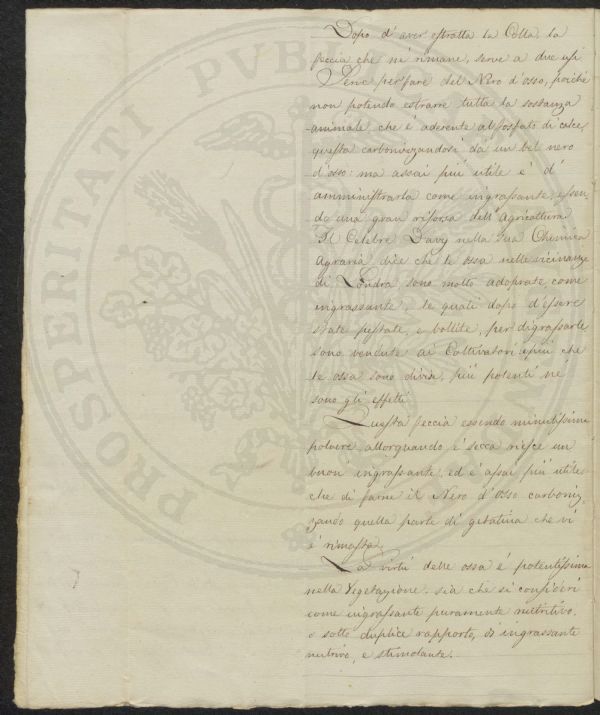 Dopo d'aver estratta la Colla, la
feccia che ni rimane, serve a due usi
Serve per fare del Nero d'osso, poichè
non potendo estrarre tutta la sostanza
animale che è aderente al fosfato di calce,
questa carbonizzandosi dà un bel nero
d'osso: ma assai più utile è d'
amministrarla come ingrassante, essen
do una gran risorsa dell'Agricoltura.
Il Celebre Davy nella sua Chemica
Agraria dice che le ossa nelle vicinanze
di Londra, sono molto adoprate come
ingrassante, le quali dopo d'essere
state pestate, e bollite, per digrassarle
sono vendute ai Coltivatori, e più che
le ossa sono divise, più potenti ne
sono gli effetti.
Questa feccia essendo minutissima
polvere allorquando è secca riesce un
buon' ingrassante, ed è assai più utile
che di farne il Nero d'osso carboniz-
zando quella parte di gelatina che vi
è rimasta.
La virtù delle ossa è potentissima
nella Vegetazione. sia che si consideri
come ingrassante puramente nutritivo,
o sotto duplice rapporto, di ingrassante
nutrivo, e stimolante.
PROSPERITATI PVBL